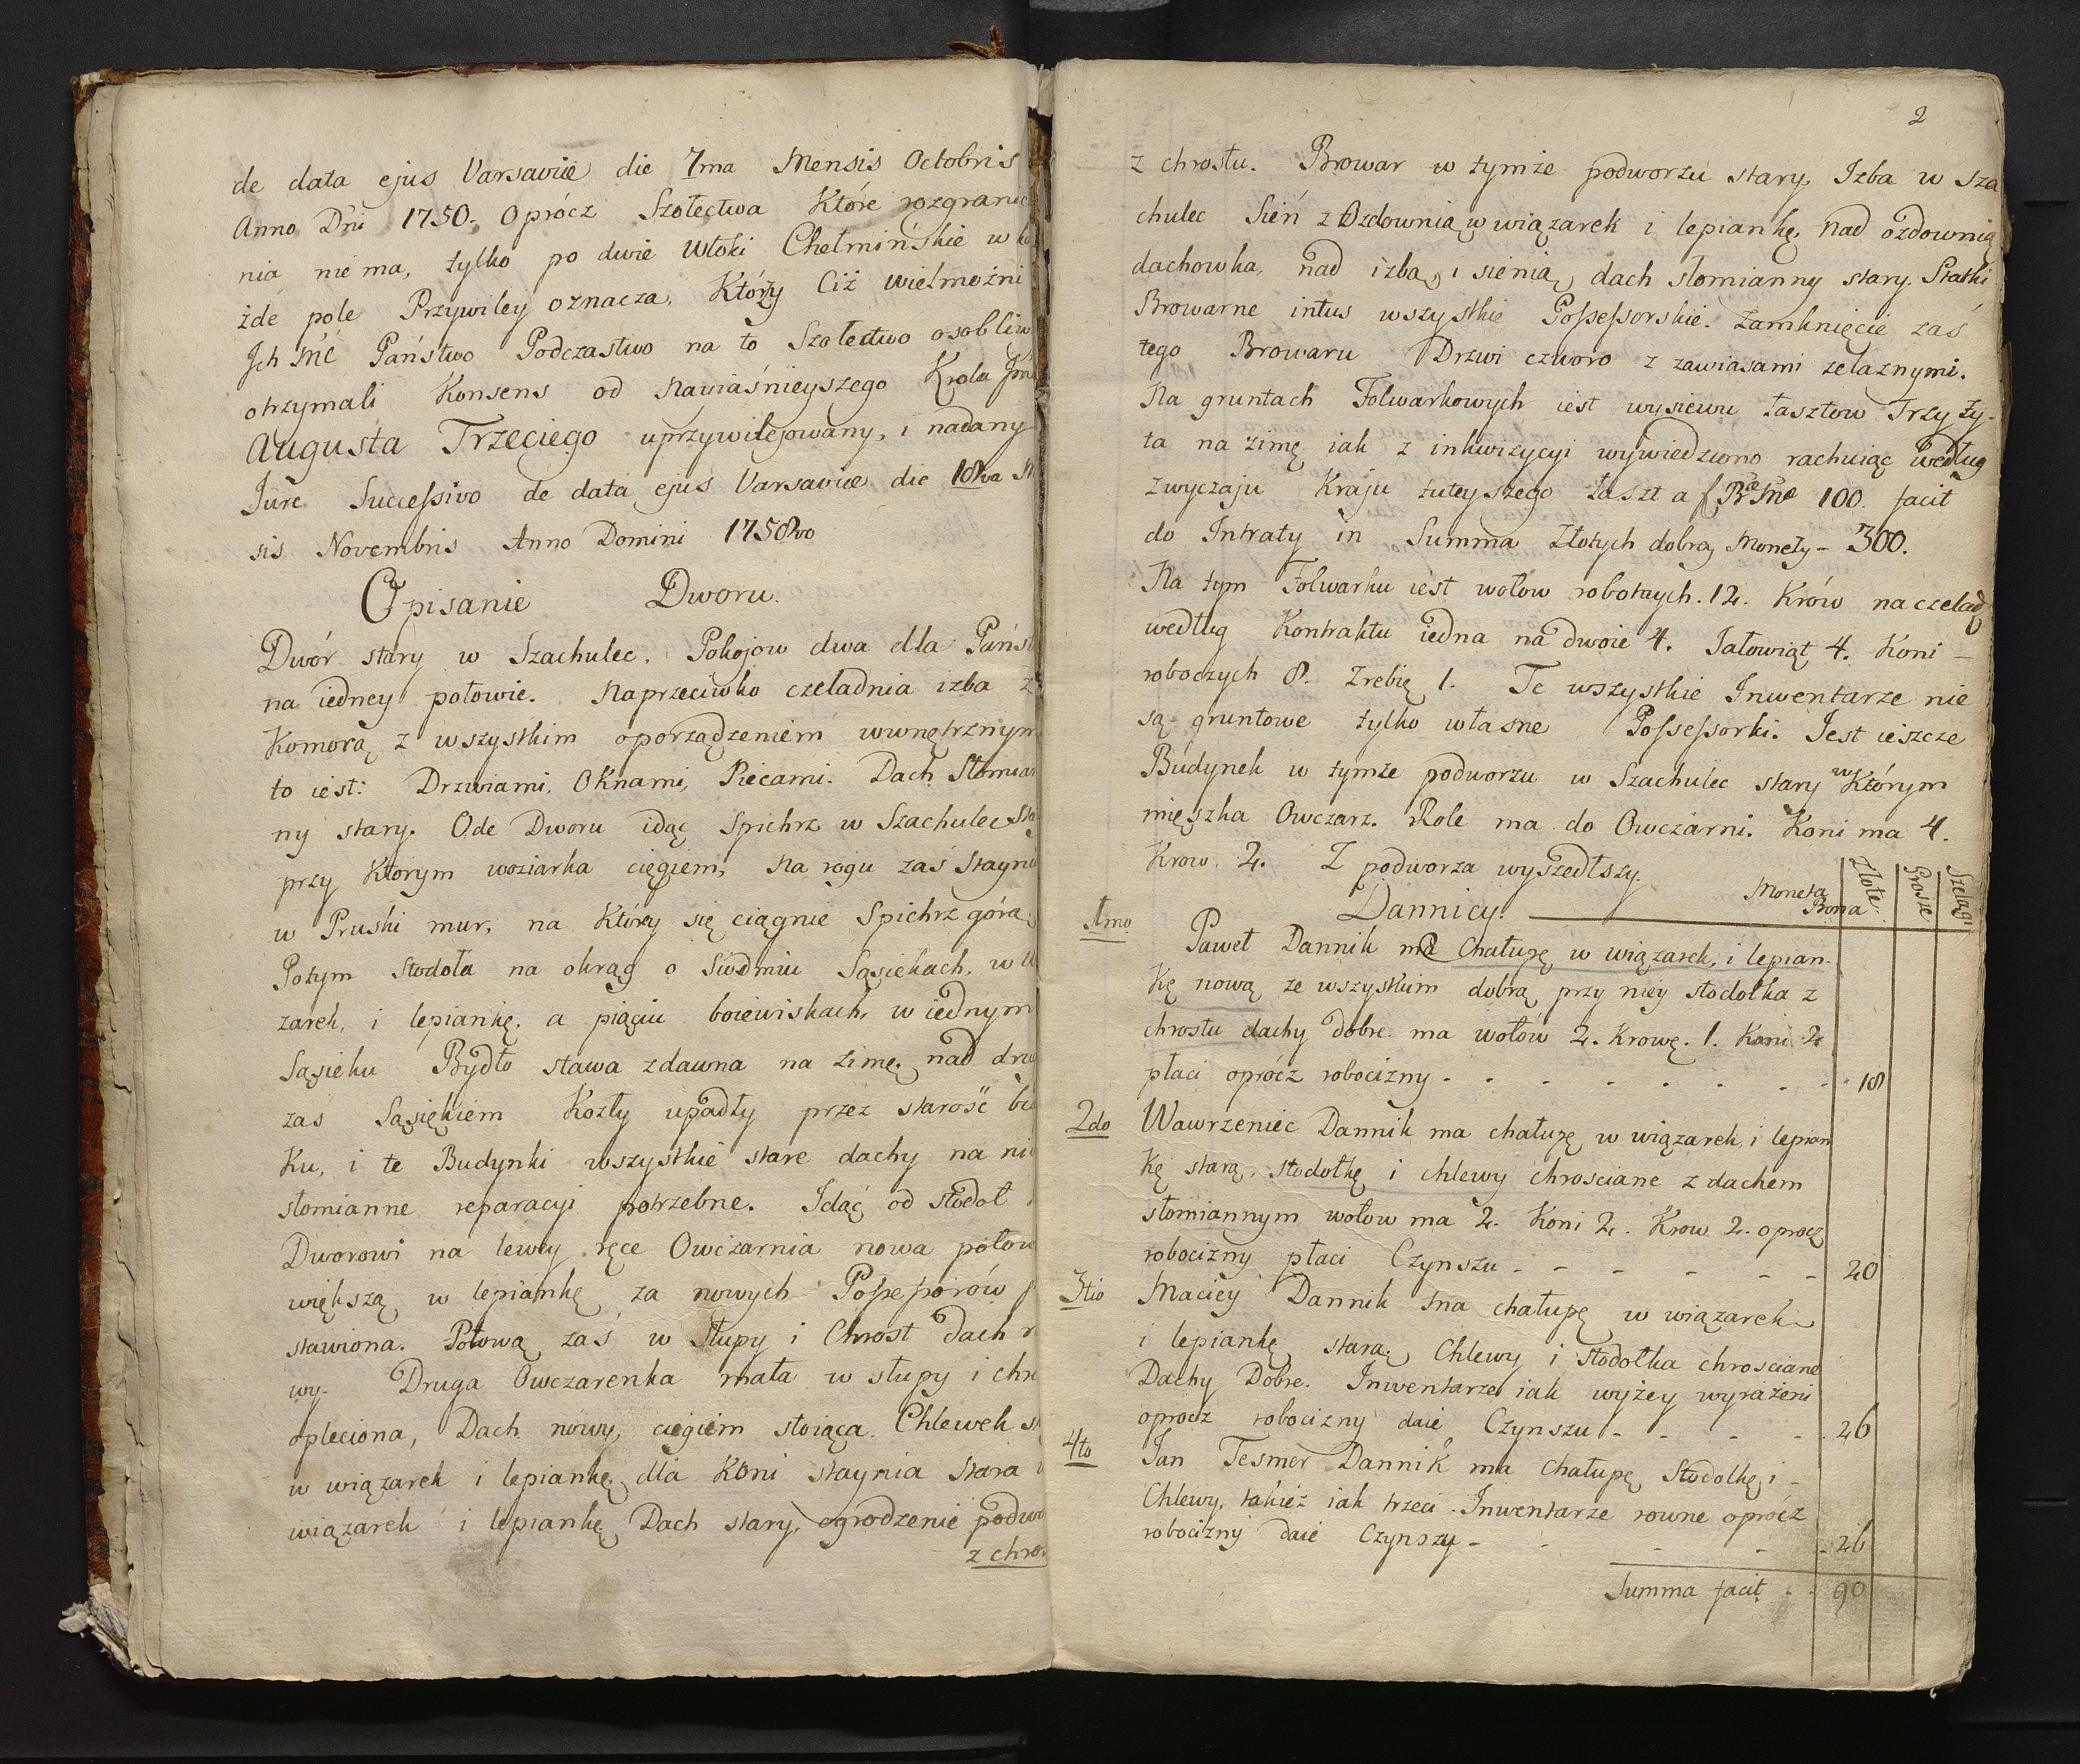 de data ejus Varsaviæ die 7ma Mensis Octobris
Anno Dni 1750. Oprócz Szołectwa Które rozgranic
nia nie ma, tylko po dwie Włoki Chełmińskie w ka
żde pole Przywiley oznacza. Którzy Ciż wielmożni
Ich Mć Państwo Podczastwo na to Szołectwo osobliw
otrzymali Konsens od Naviaśnieyszego Krola Jmć
Augusta Trzeciego uprzywilejowany, i nadany
Jure Successivo de data ejus Varsaviæ die 18va M
sis Novembris Anno Domini 1758vo
Opisanie Dworu.
Dwór stary w Szachulec. Pokojow dwa dla Pańs
na iedney połowie. Naprzeciwko czeladnia izba z
Komorą z wszystkim oporządzeniem wewnętrznym
to iest: Drzwiami, Oknami, Piecami. Dach Słomian
ny stary. Ode Dworu idąc Spichrz w Szachulec Sta
przy Ktorym woziarka cięgiem, Na rogu zaś Stayni
w Pruski mur, na Który się ciągnie Spichrz górą,
Potym Stodoła na okrąg o Siedmiu Sąsiekach, w w
zarek, i lepiankę, a piąciu boiewiskach, w iednym
Sąsieku Bydło stawa zdawna na zimę, nad dru
zas Sąsiękiem Kozły upadły przez starość bu
Ku, i te Budynki wszystkie stare dachy na ni
słomianne reparacyi potrzebne. Idąć od stodoł
Dworowi na lewey ręce Owczarnia nowa połow
większą w lepiankę za nowych Possessorów p
stawiona. Połową zaś w Słupy i Chrost Dach n
wy. Druga Owczarenka mała w słupy i chr
opleciona, Dach nowy, cięgiem stoiąca. Chlewek st
w wiązarek i lepiankę, dla Koni staynia stara
wiązarek i lepiankę Dach stary, ogrodzenie podwo
z chro
2
z chrostu. Browar w tymże podworzu stary, Izba w Sza
chulec Sień z Ozdownią w wiązarek i lepiankę, Nad ozdownią
dachowka, nad izbą, i sienią, dach słomianny stary. Statki
Browarne intus wszystkie Possessorskie. Zamknięcie zaś
tego Browaru Drzwi czworo z zawiasami zelaznymi.
Na gruntach Folwarkowych iest wysiewu Łasztow Trzy ży-
ta na zimę iak z inkwizycyi wywiedziono rachuiąc według
zwyczaju Kraju tuteyszego Łaszt a 100. facit
do Intraty in Summa Złotych dobrą Monety – 300.
Na tym Folwarku iest wołow robotnych. 12. Krów na czeladź
według Kontraktu iedna na dwoie 4. Jałowiąt 4. Koni –
roboczych 8. Zrebię 1. Te wszystkie Inwentarze nie
są gruntowe tylko własne Possessorki. Jest ieszcze
Budynek w tymże podworzu w Szachulec stary w Którym
mięszka Owczarz. Role ma do Owczarni. Koni ma 4.
Krow. 2. Z podworza wyszedłszy.
Dannicy. Moneta Bona Złote Grosze Szelągi
1mo Paweł Dannik ma Chałupę w wiązarek, i lepian-
kę nową ze wszystkim dobrą przy niey stodołka z
chrostu dachy dobre. ma wołów 2. Krowę. 1. Koni 2
płaci oprócz robocizny - 18
2do Wawrzeniec Dannik ma chałupę w wiązarek, i lepian
kę starą, stodołkę i chlewy chrosciane z dachem
słomiannym wołow ma 2. Koni 2. Krow 2. oprocz
robocizny płaci Czynszu - 20
3tio Maciey Dannik ma chałupę w wiązarek
i lepiankę starą, Chlewy i Stodołka chrosciane
Dachy Dobre. Inwentarze iak wyżey wyrażeni
oprocz robocizny daie Czynszu - 26
4to Jan Tesmer Dannik ma Chałupę Stodolkę, i -
Chlewy, takież iak trzeci. Inwentarze rowne oprócz
robocizny daie Czynszy - 26
Summa facit - 90